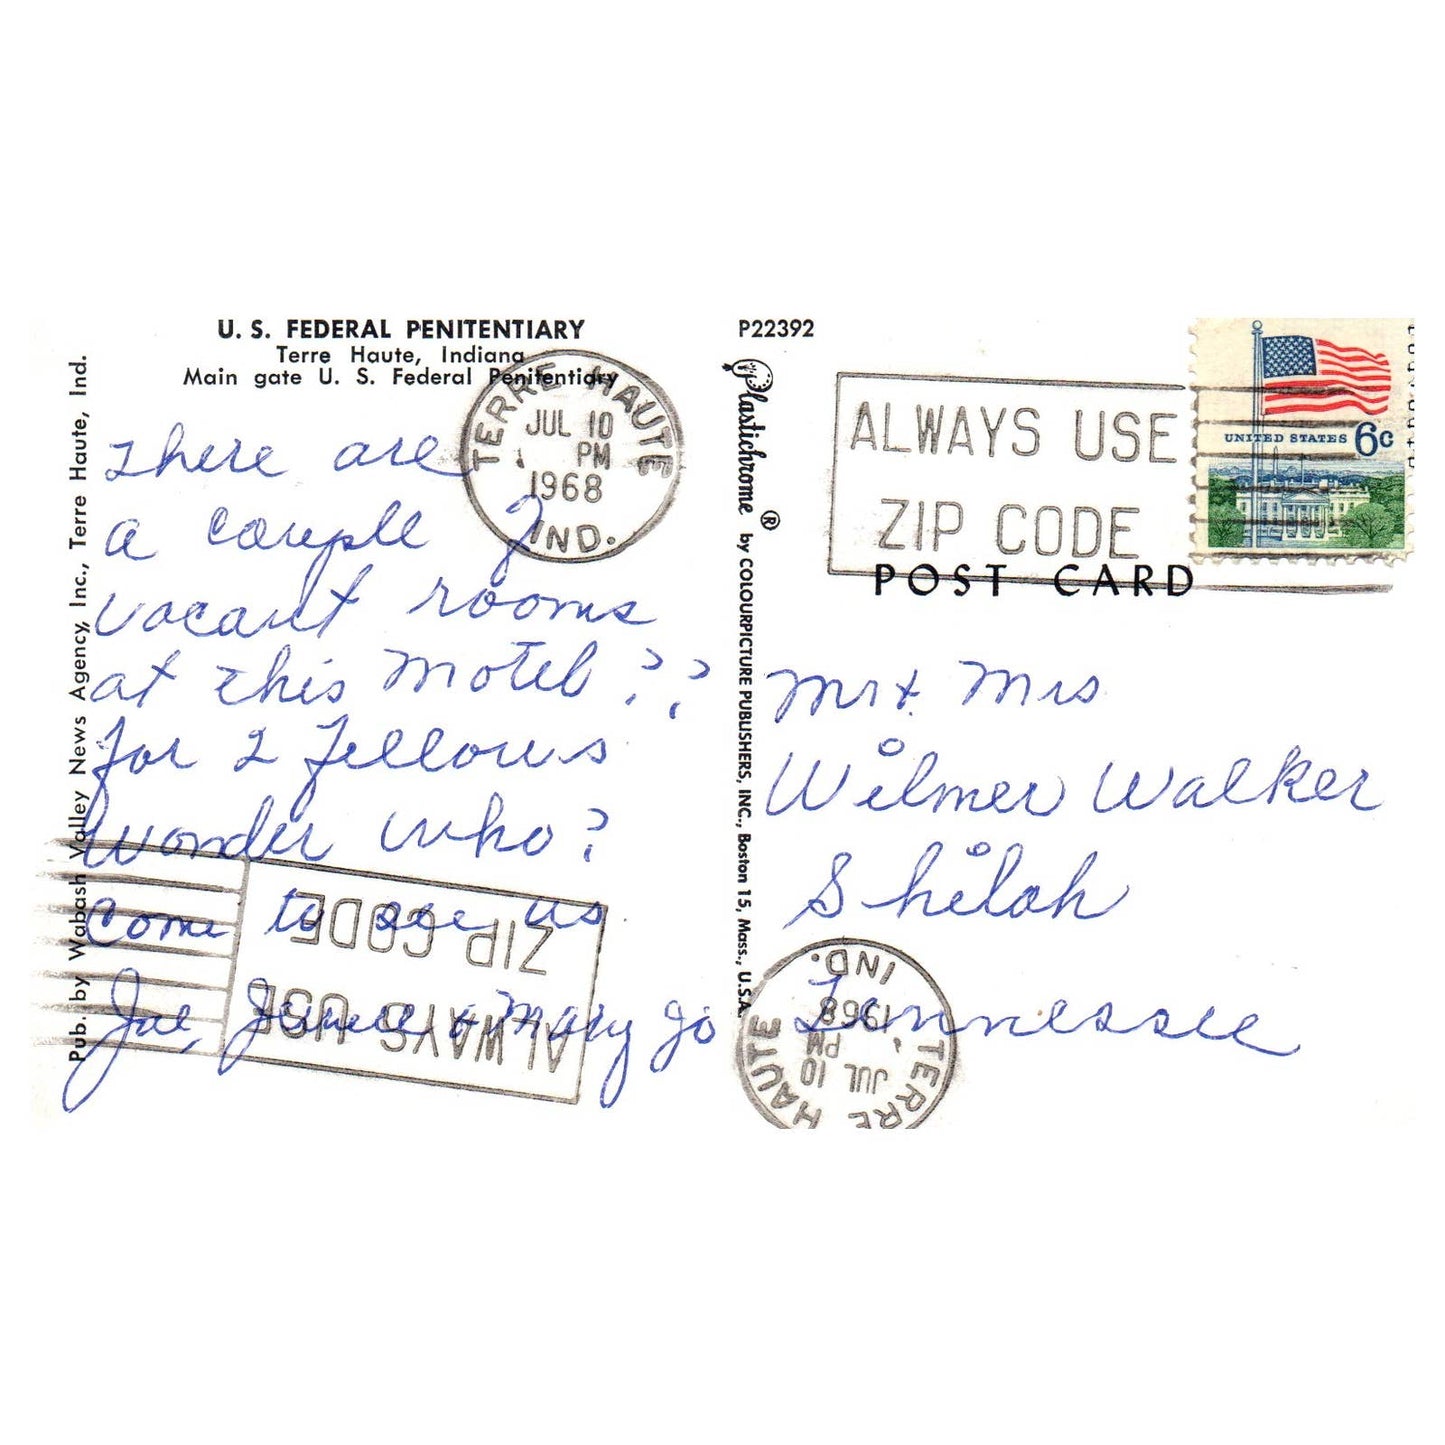 U. S. FEDERAL PENITENTIARY
Terre Haute, Indiana
Main gate U. S. Federal Penitentiary
Pub. by Wabash Valley News Agency, Inc., Terre Haute, Ind.
TERRE HAUTE
JUL 10
PM
1968
IND.
There are
a couple of
vacant rooms
at this Motel ??
for 2 fellows
wonder who?
Come to see us
Joe, & Mary Jo
ZIP CODE
ALWAYS USE
P22392
Plastichrome® by COLOURPICTURE PUBLISHERS, INC., Boston 15, Mass., U.S.A.
ALWAYS USE
ZIP CODE
UNITED STATES 6c
POST CARD
Mr & Mrs
Wilmer Walker
Shiloh
Tennessee
TERRE HAUTE
JUL 10
PM
1968
IND.